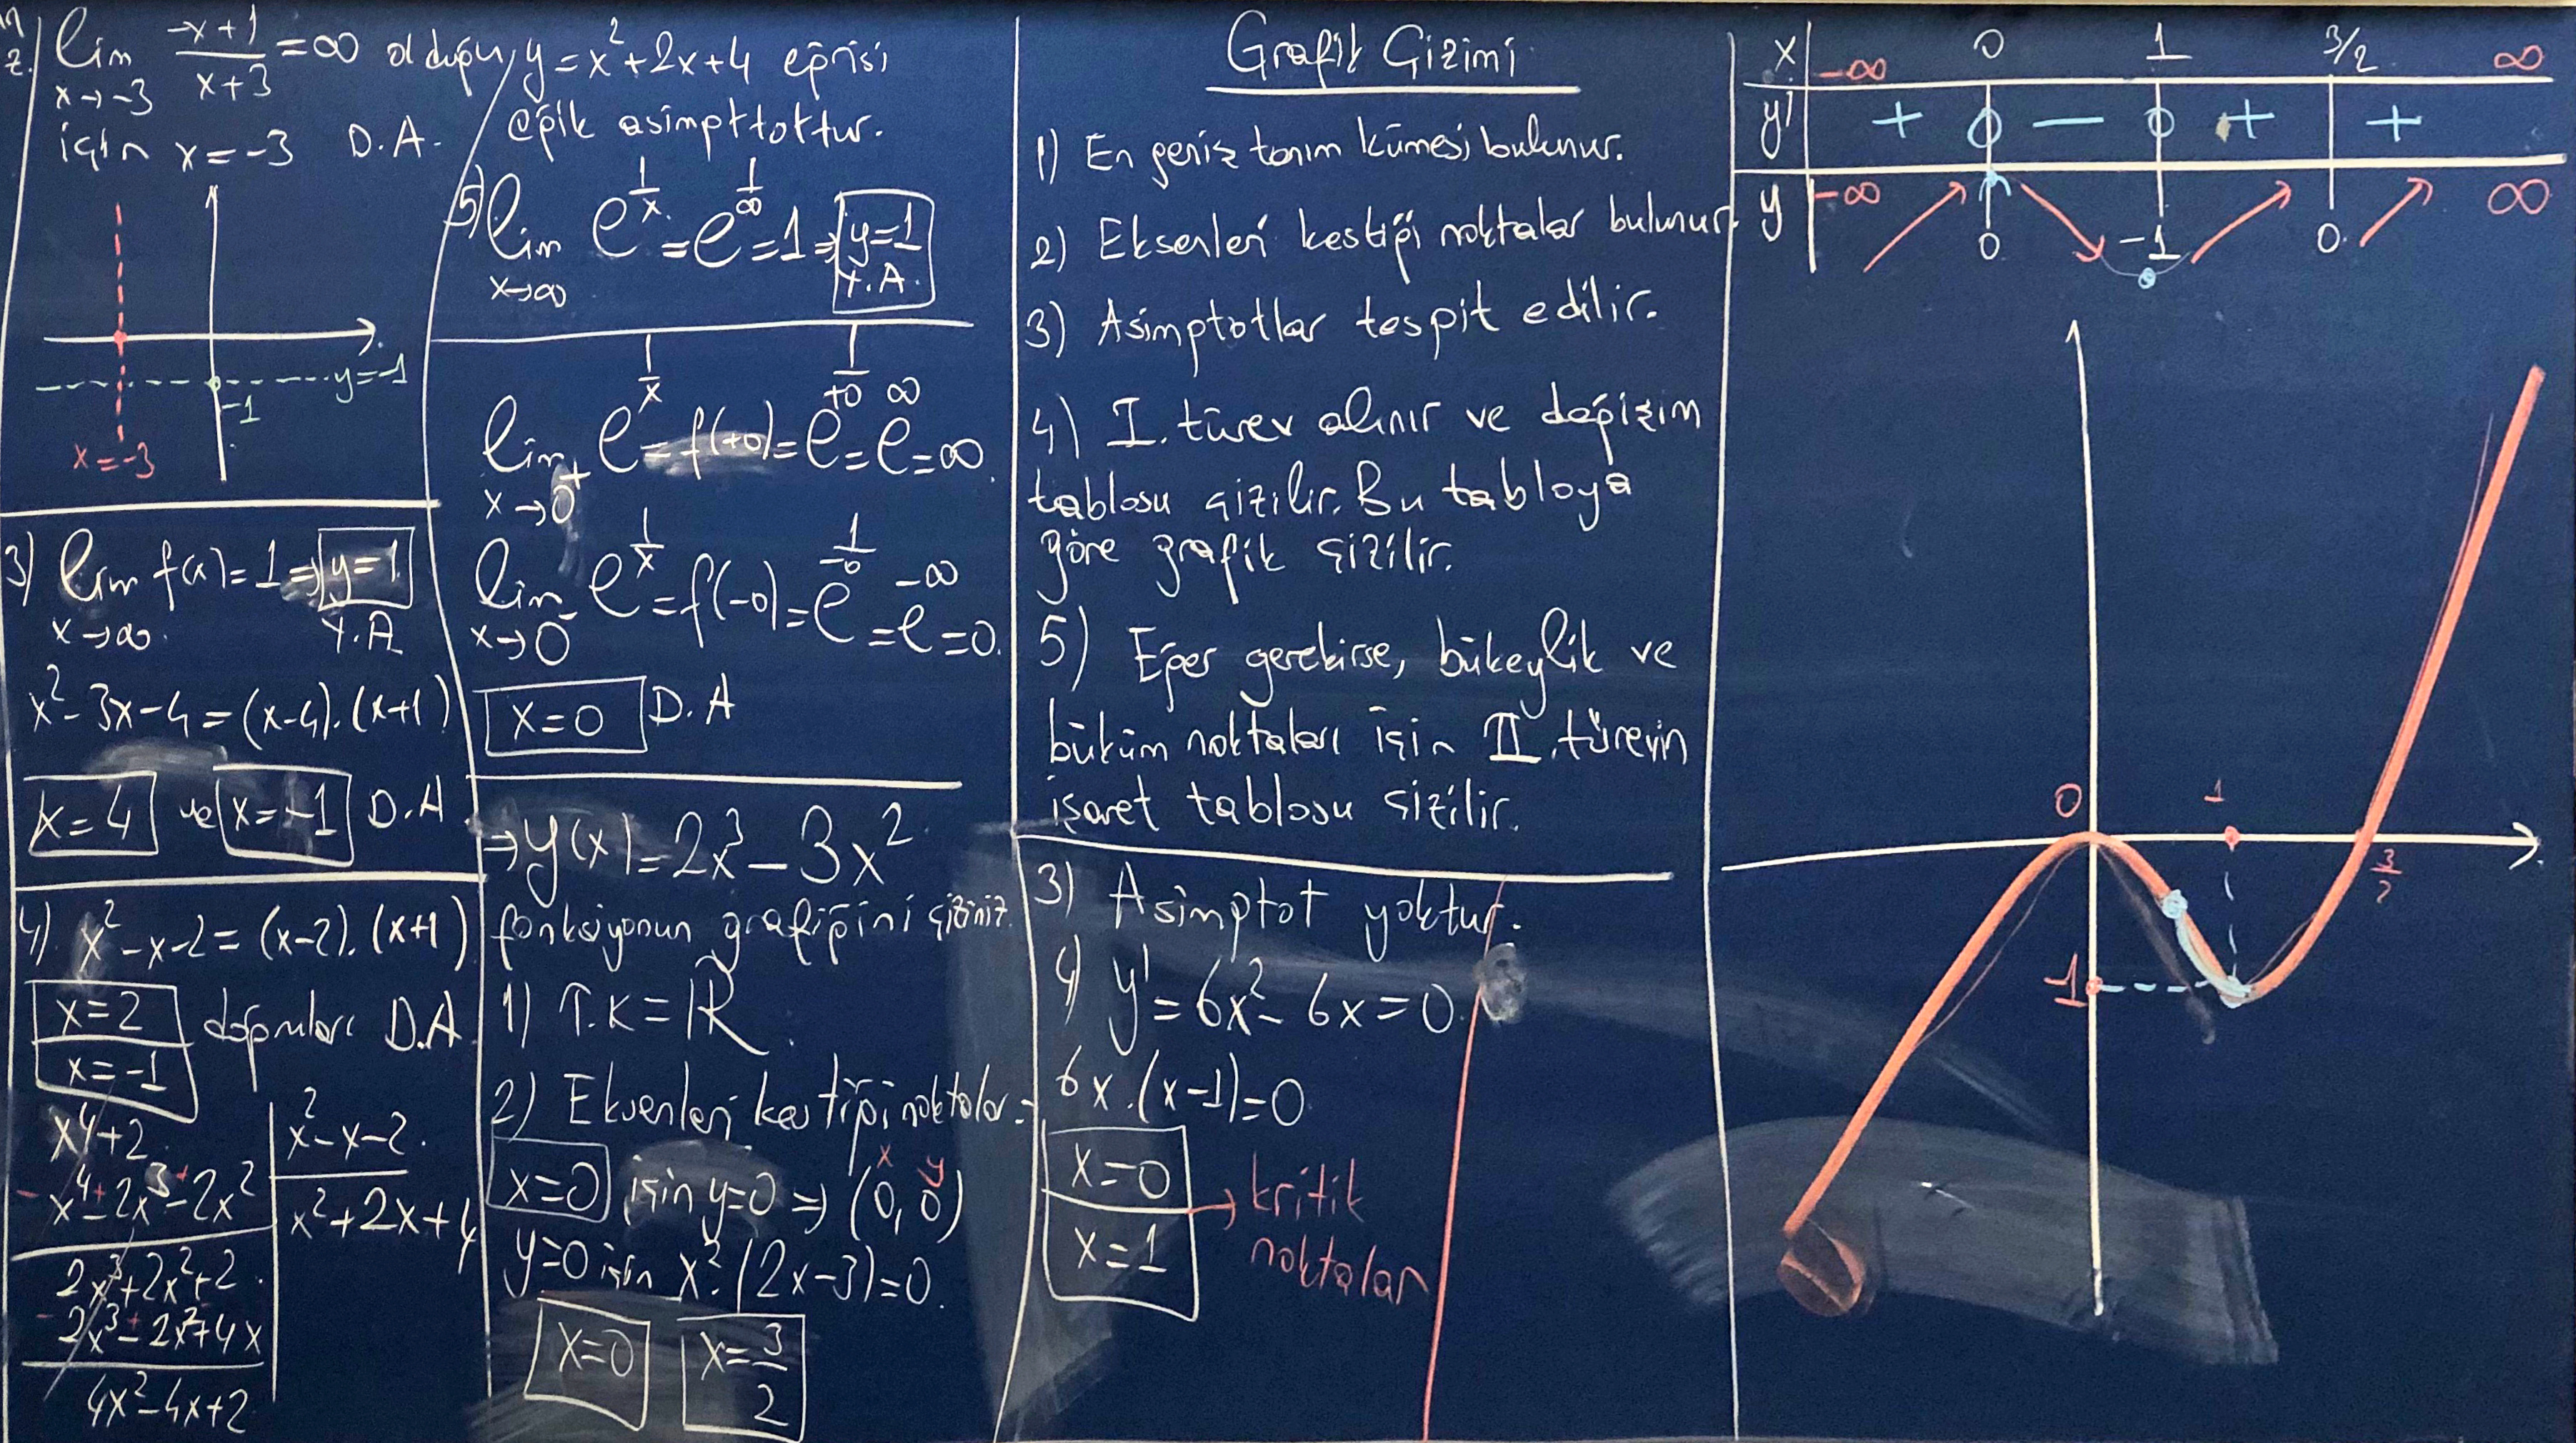 lim x→-3 (-x+1)/(x+3) = ∞ olduğu
için x=-3 D.A.
y=-1
-1
x=-3
3) lim x→∞ f(x)=1 ⇒ y=1
Y.A
x²-3x-4=(x-4).(x+1)
x=4 ve x=-1 D.A
4) x²-x-2=(x-2).(x+1)
x=2
x=-1
doğruları D.A
x⁴+2
x²-x-2
x⁴-2x³-2x²
x²+2x+4
2x³+2x²+2
2x³-2x²+4x
4x²-4x+2
y=x²+2x+4 eğrisi
eğik asimpttottur.
5) lim x→∞ e^(1/x) = e^(1/∞) = 1 ⇒ y=1
Y.A.
lim x→0⁺ e^(1/x) = f(+0) = e^(1/+0) = e^∞ = ∞
lim x→0⁻ e^(1/x) = f(-0) = e^(1/-0) = e^-∞ = 0
x=0 D.A
→ y(x)=2x³-3x²
fonksiyonun grafiğini çiziniz.
1) T.K=ℝ
2) Eksenleri kestiği noktalar
x y
x=0 için y=0 ⇒ (0,0)
y=0 için x².(2x-3)=0
x=0 x=3/2
Grafik Çizimi
1) En geniş tanım kümesi bulunur.
2) Eksenleri kestiği noktalar bulunur.
3) Asimptotlar tespit edilir.
4) I. türev alınır ve değişim
tablosu çizilir. Bu tabloya
göre grafik çizilir.
5) Eğer gerekirse, bükeylik ve
büküm noktaları için II. türevin
işaret tablosu çizilir.
3) Asimptot yoktur.
4) y'=6x²-6x=0
6x.(x-1)=0
x=0
x=1
→ kritik
noktalar
x -∞ 0 1 3/2 ∞
y' + 0 - 0 + +
y -∞ 0 -1 0 ∞
0 1
3/2
-1